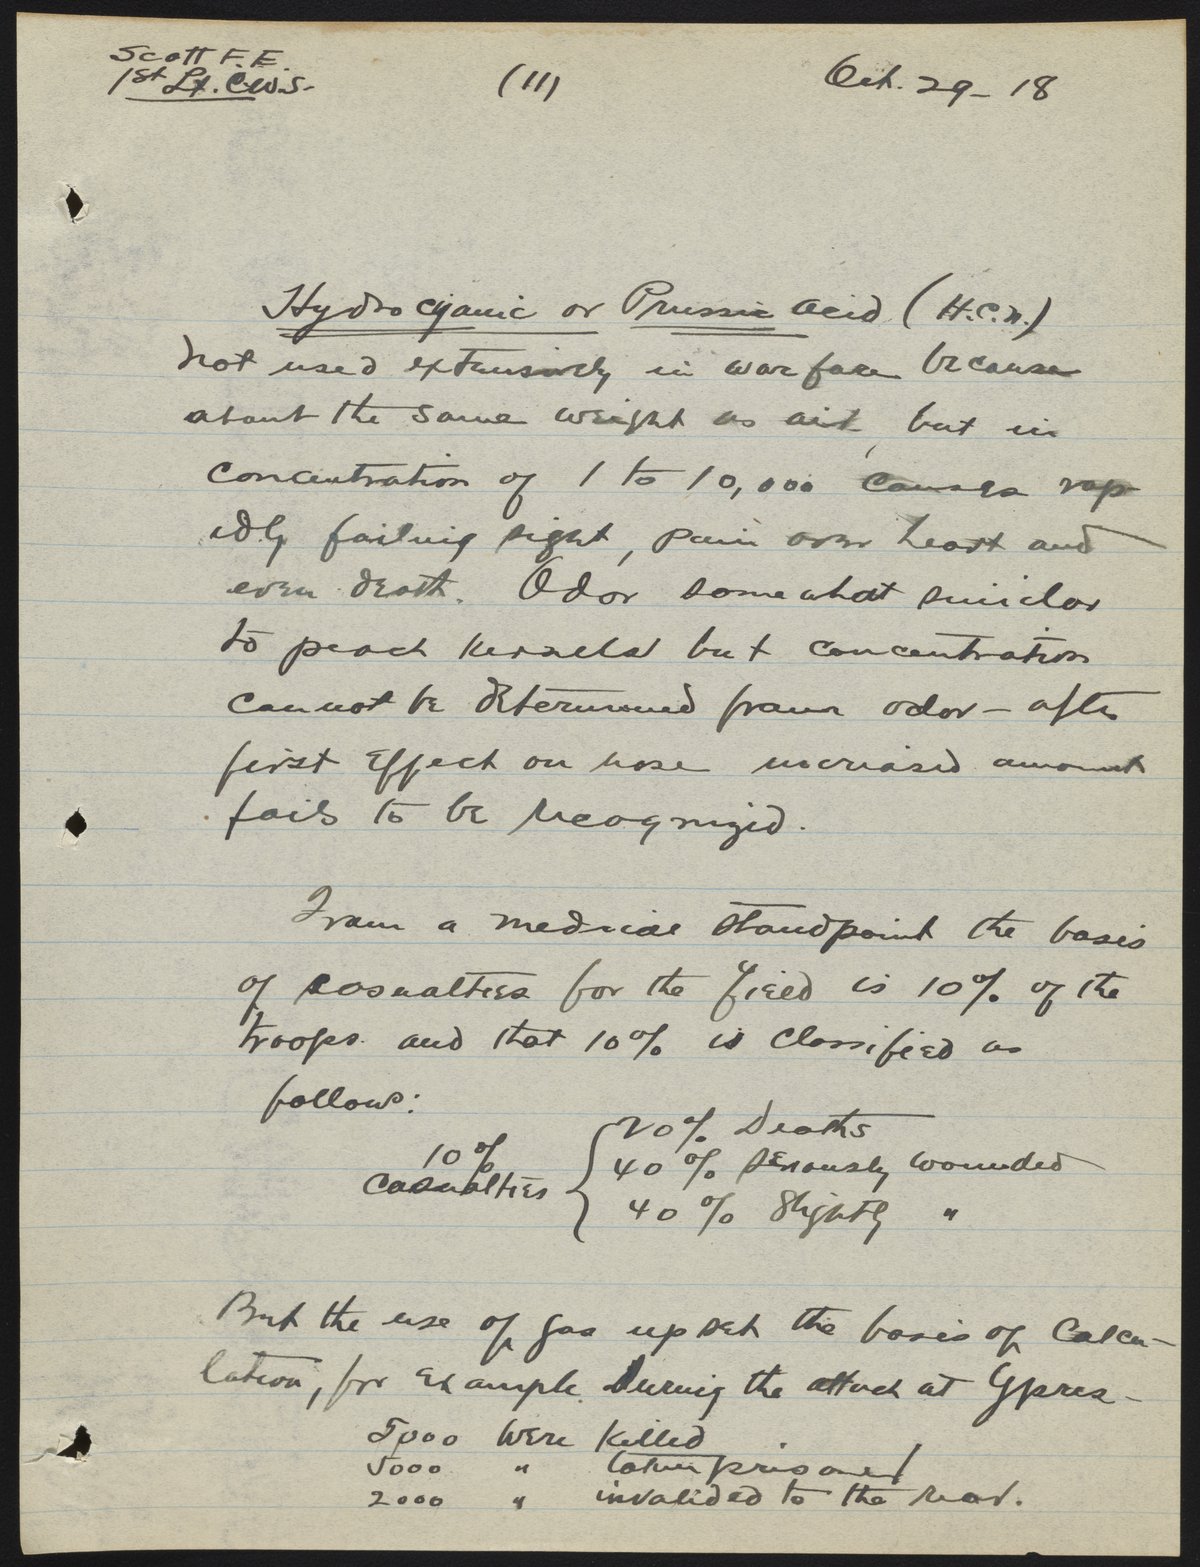 Scott F. E.
1st Lt. C.W.S.
(11)
Oct. 29 - 18
Hydrocyanic or Prussic Acid (H.C.N.)
Not used extensively in warfare because
about the same weight as air, but in
concentration of 1 to 10,000 causes rap-
idly failing sight, pain over heart and
even death. Odor somewhat similar
to peach kernels but concentration
cannot be determined from odor - after
first effect on nose increased amount
fails to be recognized.
From a medical standpoint the basis
of casualties for the field is 10% of the
troops and that 10% is classified as
follows:
10% Casualties
20% Deaths
40% Seriously wounded
40% Slightly "
But the use of gas upset the basis of calcu-
lation, for example. During the attack at Ypres -
5000 were killed
5000 " taken prisoner
2000 " invalided to the rear.